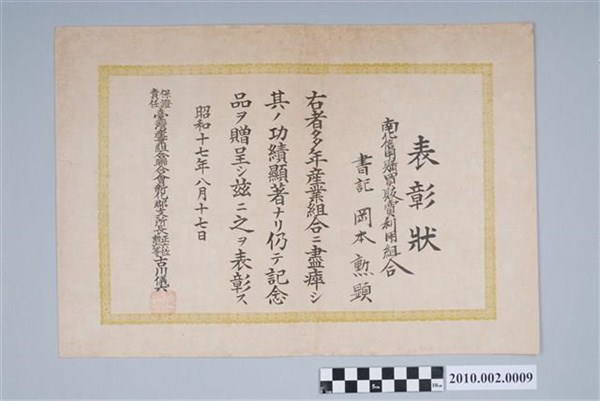 表彰狀
南化信用購買販賣利用組合
書記 岡本勲顯
右者多年産業組合ニ盡瘁シ
其ノ功績顯著ナリ仍テ記念
品ヲ贈呈シ茲ニ之ヲ表彰ス
昭和十七年八月十七日
保證責任臺灣産業組合聯合會新化郡支所長 古川儀六
5cm 10cm
2010.002.0009